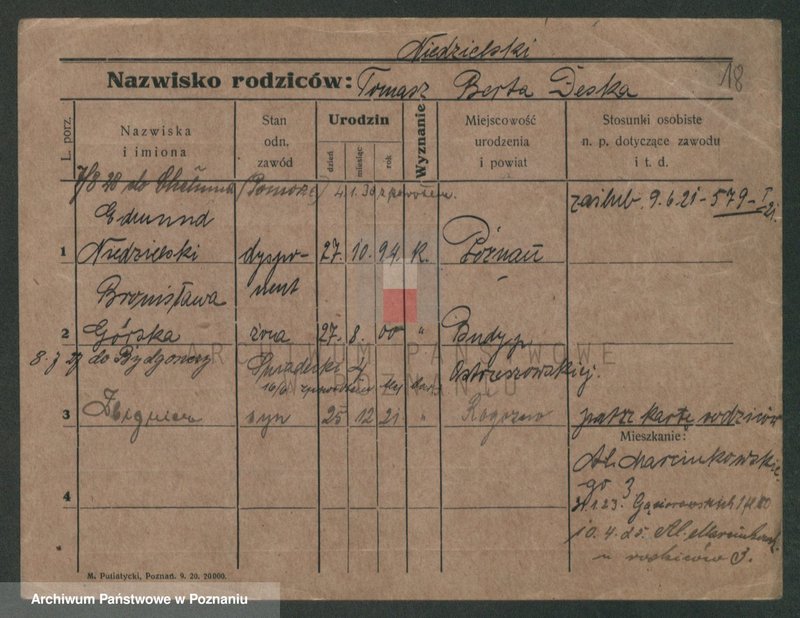 Niedzielski
18
Nazwisko rodziców: Tomasz Berta Deska
L. porz.
Nazwiska i imiona
Stan odn. zawód
Urodzin
dzień
miesiąc
rok
Wyznanie
Miejscowość urodzenia i powiat
Stosunki osobiste n. p. dotyczące zawodu i t. d.
do Chełmna (Pomorze) 4.1.30 z powrotem.
zaślub. 9.6.21 - 579 - I/21.
Edmund
1 Niedzielski dyspo- 27. 10. 94. K. Poznań
nent
Bronisława
2 Górska żona 27. 8. 00 "
ARCHIWUM PAŃSTWOWE
W POZNANIU
do Bydgoszczy Ostrzeszowskiej.
3 Zbigniew syn 25 12 21. " Rogoźno patrz kartę rodziców
Mieszkanie:
Al. Marcinkowskie-
go 3
4
31.1.23. Gąsiorowskich
10.4.25. Al. Marcinkowsk.
u rodziców 3.
M. Putiatycki, Poznań. 9. 20. 20000.
Archiwum Państwowe w Poznaniu